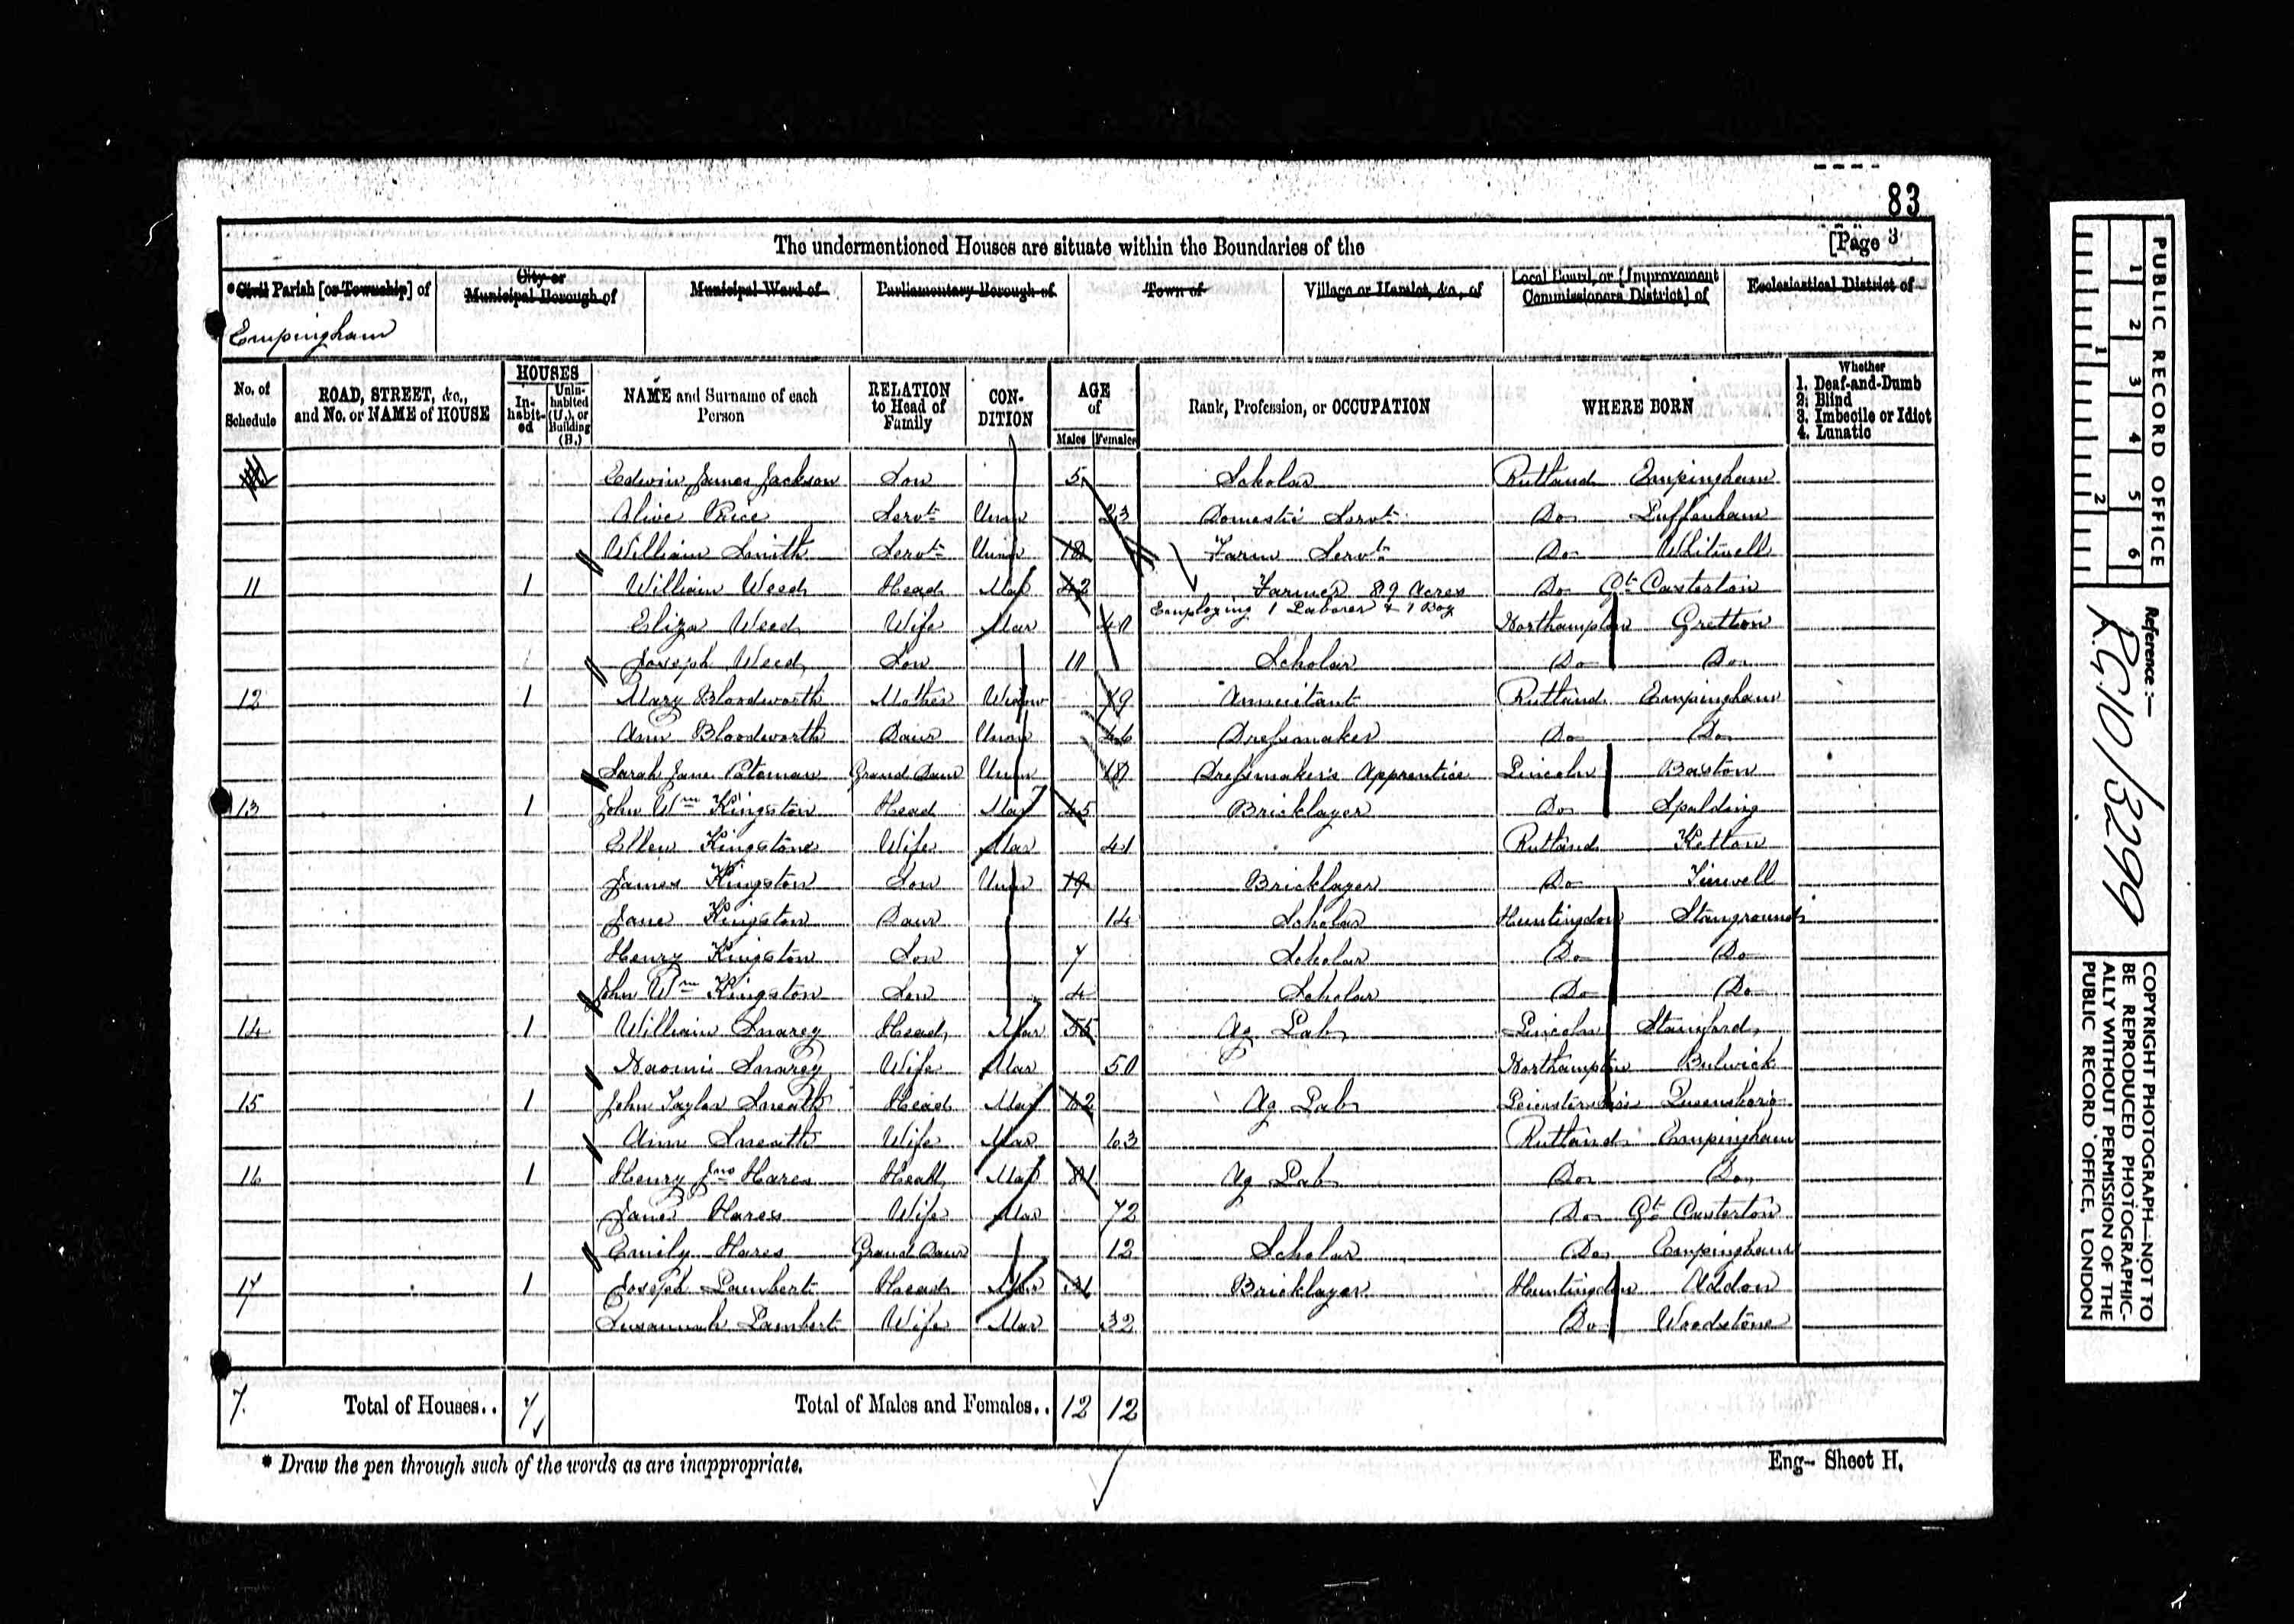 83
The undermentioned Houses are situate within the Boundaries of the [Page 3
* Civil Parish [or Township] of City or Municipal Borough of Municipal Ward of Parliamentary Borough of Town of Village or Hamlet, &c., of Local Board, or [Improvement Commissioners District] of Ecclesiastical District of
Empingham
No. of Schedule ROAD, STREET, &c., and No. or NAME of HOUSE HOUSES In-habit-ed Unin-habited (U.), or Building (B.) NAME and Surname of each Person RELATION to Head of Family CON-DITION AGE of Males Females Rank, Profession, or OCCUPATION WHERE BORN Whether 1. Deaf-and-Dumb 2. Blind 3. Imbecile or Idiot 4. Lunatic
Edwin James Jackson Son 5 Scholar Rutland Empingham
Alice Price Servt Unm 23 Domestic Servt Do Luffenham
William Smith Servt Unm 18 Farm Servt Do Whitwell
11 1 William Weed Head Mar 42 Farmer 89 Acres Do Gt Casterton
Employing 1 Laborer & 1 Boy
Eliza Weed Wife Mar 40 Northampton Gretton
Joseph Weed Son 11 Scholar Do Do
12 1 Mary Bloodworth Mother Widow 79 Annuitant Rutland Empingham
Ann Bloodworth Daur Unm 46 Dressmaker Do Do
Sarah Jane Unm Grand Daur Dressmaker's Apprentice Lincoln Baston
13 1 John Wm Kingston Head Mar 45 Bricklayer Do Spalding
Ellen Kingston Wife Mar 41 Rutland Ketton
James Kingston Son Unm 19 Bricklayer Do Tinwell
Jane Kingston Daur 14 Scholar Huntingdon Standground
Henry Kingston Son 7 Scholar Do Do
John Wm Kingston Son 4 Scholar Do Do
14 1 William Snarey Head Mar Ag Lab Lincoln Stamford
Naomi Snarey Wife Mar 50 Northampton Bulwick
15 1 John Taylor Sneath Head Mar 62 Ag Lab Leicestershire Queenboro
Ann Sneath Wife Mar 63 Rutland Empingham
16 1 Henry Jno Hares Head Mar 81 Ag Lab Do Do
Jane Hares Wife Mar 72 Do Gt Casterton
Emily Hares Grand Daur 12 Scholar Do Empingham
17 1 Joseph Lambert Head Mar 31 Bricklayer Huntingdon
Susannah Lambert Wife Mar 32 Do Woodstone
7. Total of Houses.. 7 Total of Males and Females.. 12 12
* Draw the pen through such of the words as are inappropriate.
Eng- Sheet H.
PUBLIC RECORD OFFICE
1 2 3 4 5 6
1 2
Reference :-
RG10/3299
COPYRIGHT PHOTOGRAPH—NOT TO
BE REPRODUCED PHOTOGRAPHIC-
ALLY WITHOUT PERMISSION OF THE
PUBLIC RECORD OFFICE, LONDON